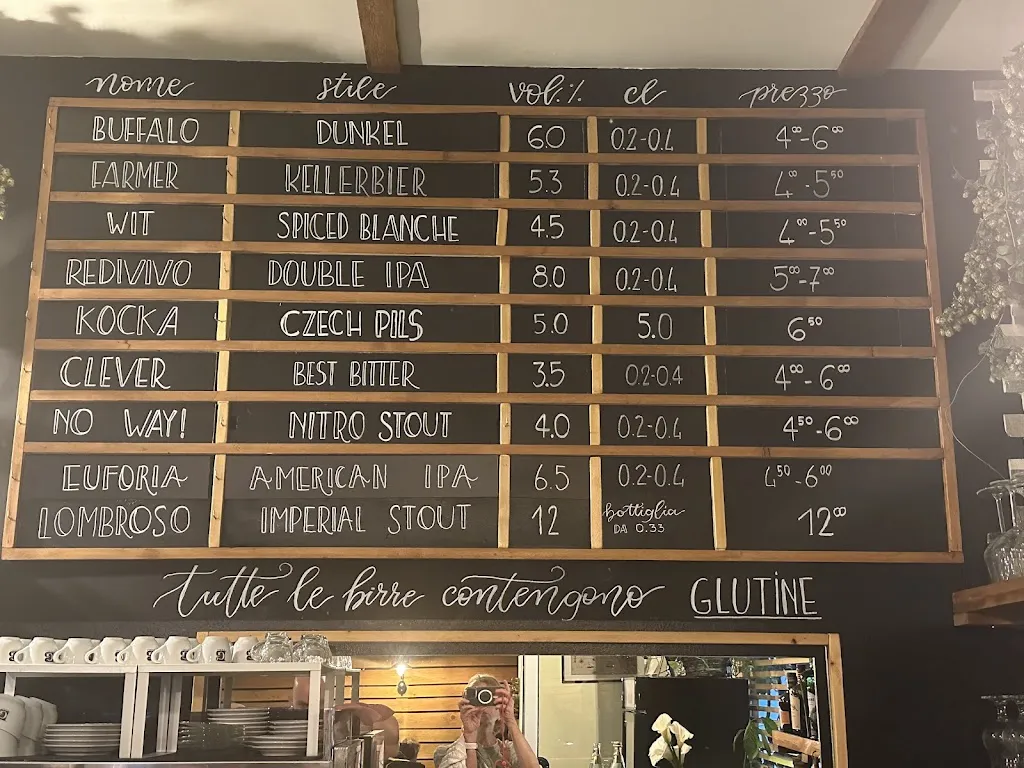 nome stile vol.% cl prezzo
BUFFALO DUNKEL 60 0.2-0.4 4⁰⁰-6⁰⁰
FARMER KELLERBIER 5.3 0.2-0.4 4⁰⁰-5⁵⁰
WIT SPICED BLANCHE 4.5 0.2-0.4 4⁰⁰-5⁵⁰
REDIVIVO DOUBLE IPA 8.0 0.2-0.4 5⁰⁰-7⁰⁰
KOCKA CZECH PILS 5.0 5.0 6⁵⁰
CLEVER BEST BITTER 3.5 0.2-0.4 4⁰⁰-6⁰⁰
NO WAY! NITRO STOUT 4.0 0.2-0.4 4⁵⁰-6⁰⁰
EUFORIA AMERICAN IPA 6.5 0.2-0.4 4⁵⁰-6⁰⁰
LOMBROSO IMPERIAL STOUT 12 bottiglia DA 0.33 12⁰⁰
tutte le birre contengono GLUTINE